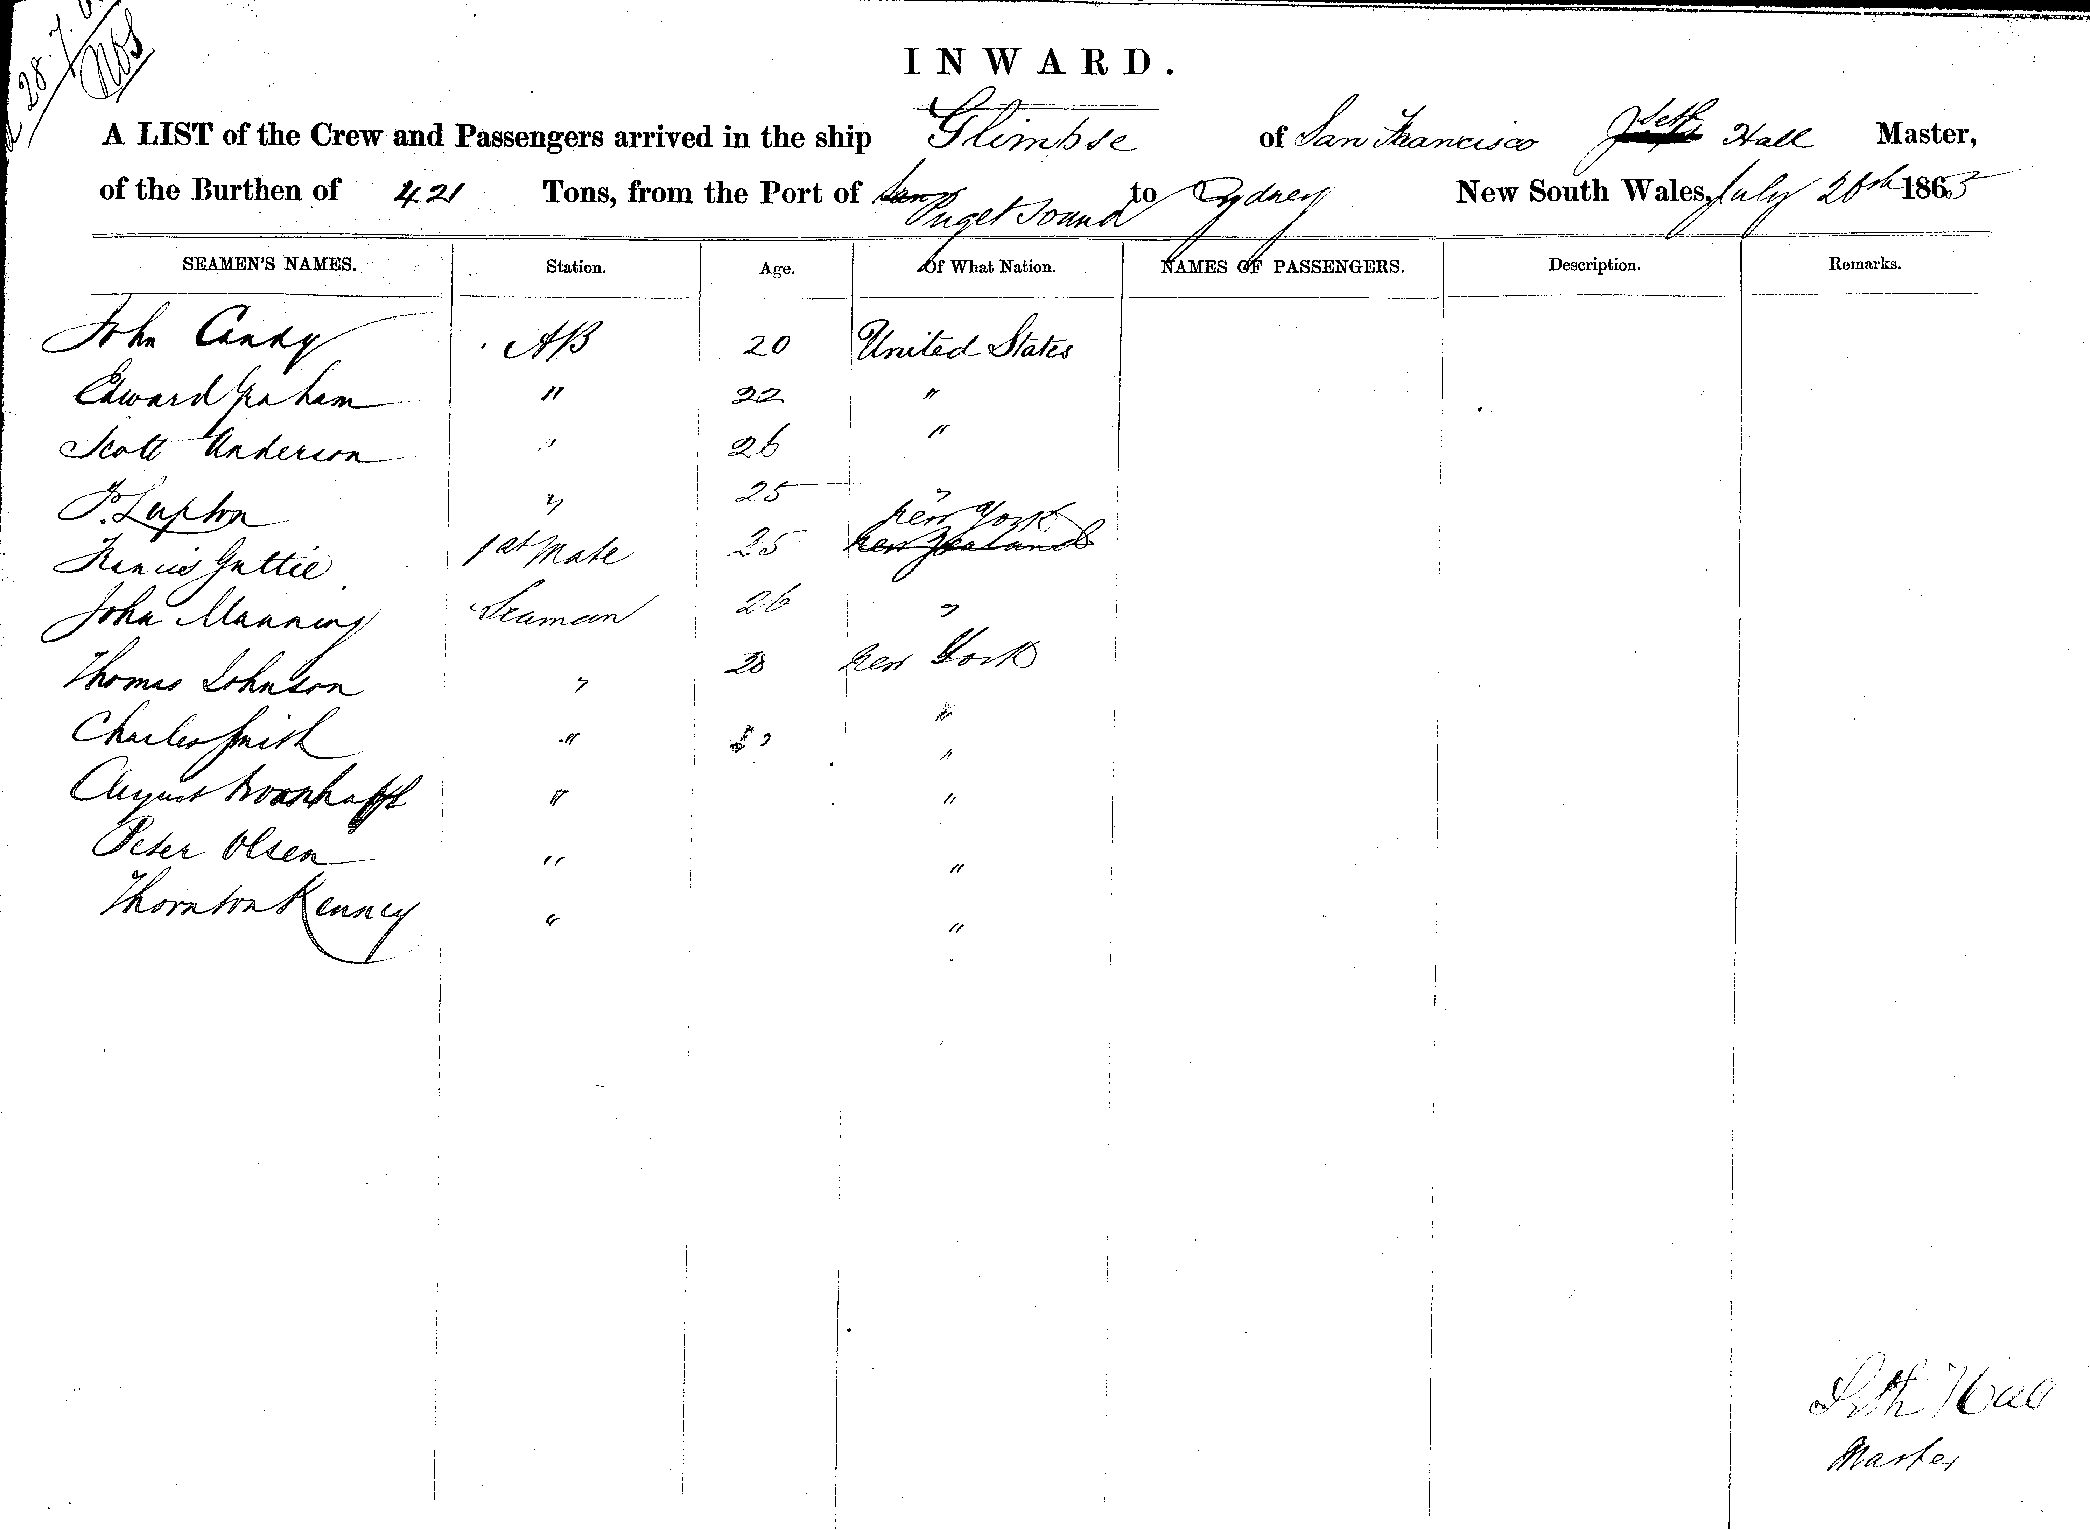 28.7.6
INWARD.
A LIST of the Crew and Passengers arrived in the ship Glimpse of San Francisco Seth Hall Master,
of the Burthen of 421 Tons, from the Port of San Puget Sound to Sydney New South Wales, July 26th 1865
SEAMEN'S NAMES. Station. Age. Of What Nation. NAMES OF PASSENGERS. Description. Remarks.
John Candy AB 20 United States
Edward Graham " 22 "
Scott Anderson " 26 "
P. Lupton " 25 "
New York
Francis Guttie 1st Mate 25 New Zealand
John Manning Seaman 26 "
Thomas Johnson " 28 New York
Charles Smith " "
August " "
Peter Olsen " "
Thornton Kenney " "
Seth Hall
Master